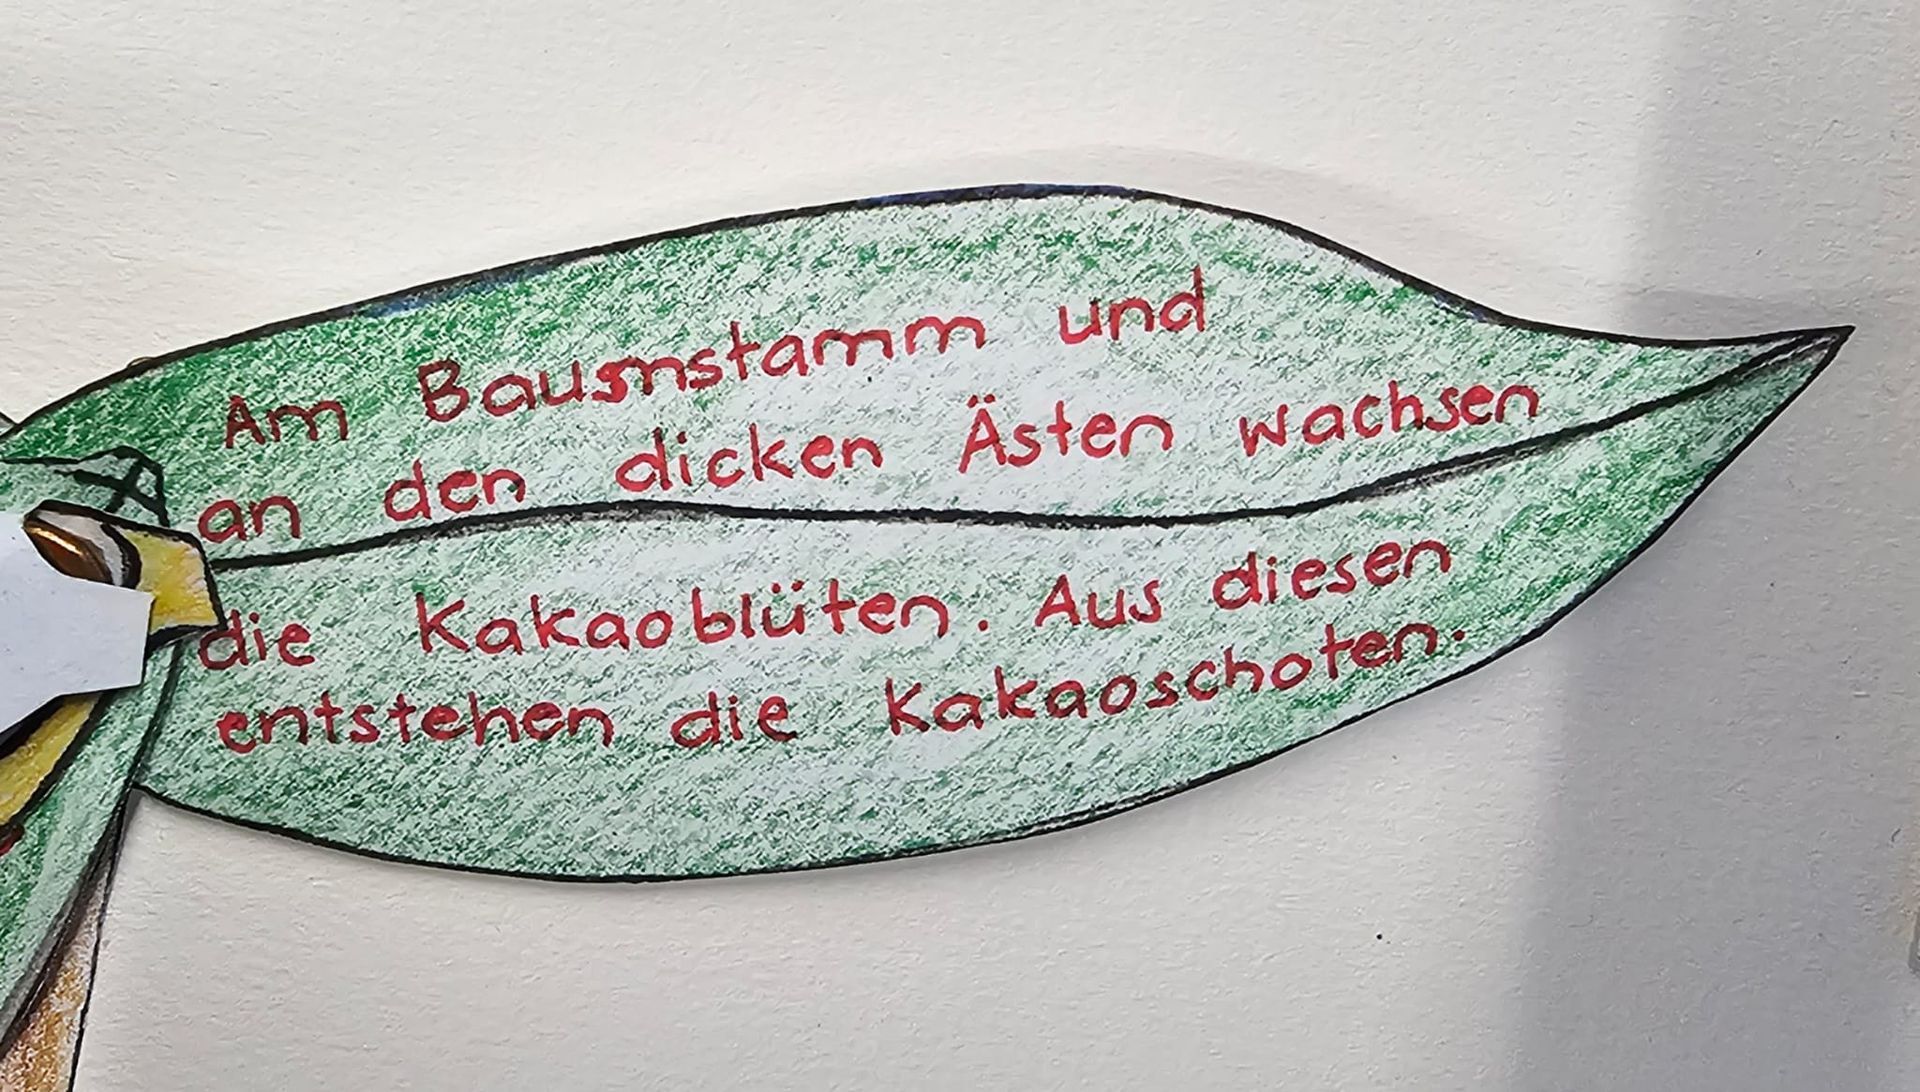 Am Baumstamm und
an den dicken Ästen wachsen
die Kakaoblüten. Aus diesen
entstehen die Kakaoschoten.